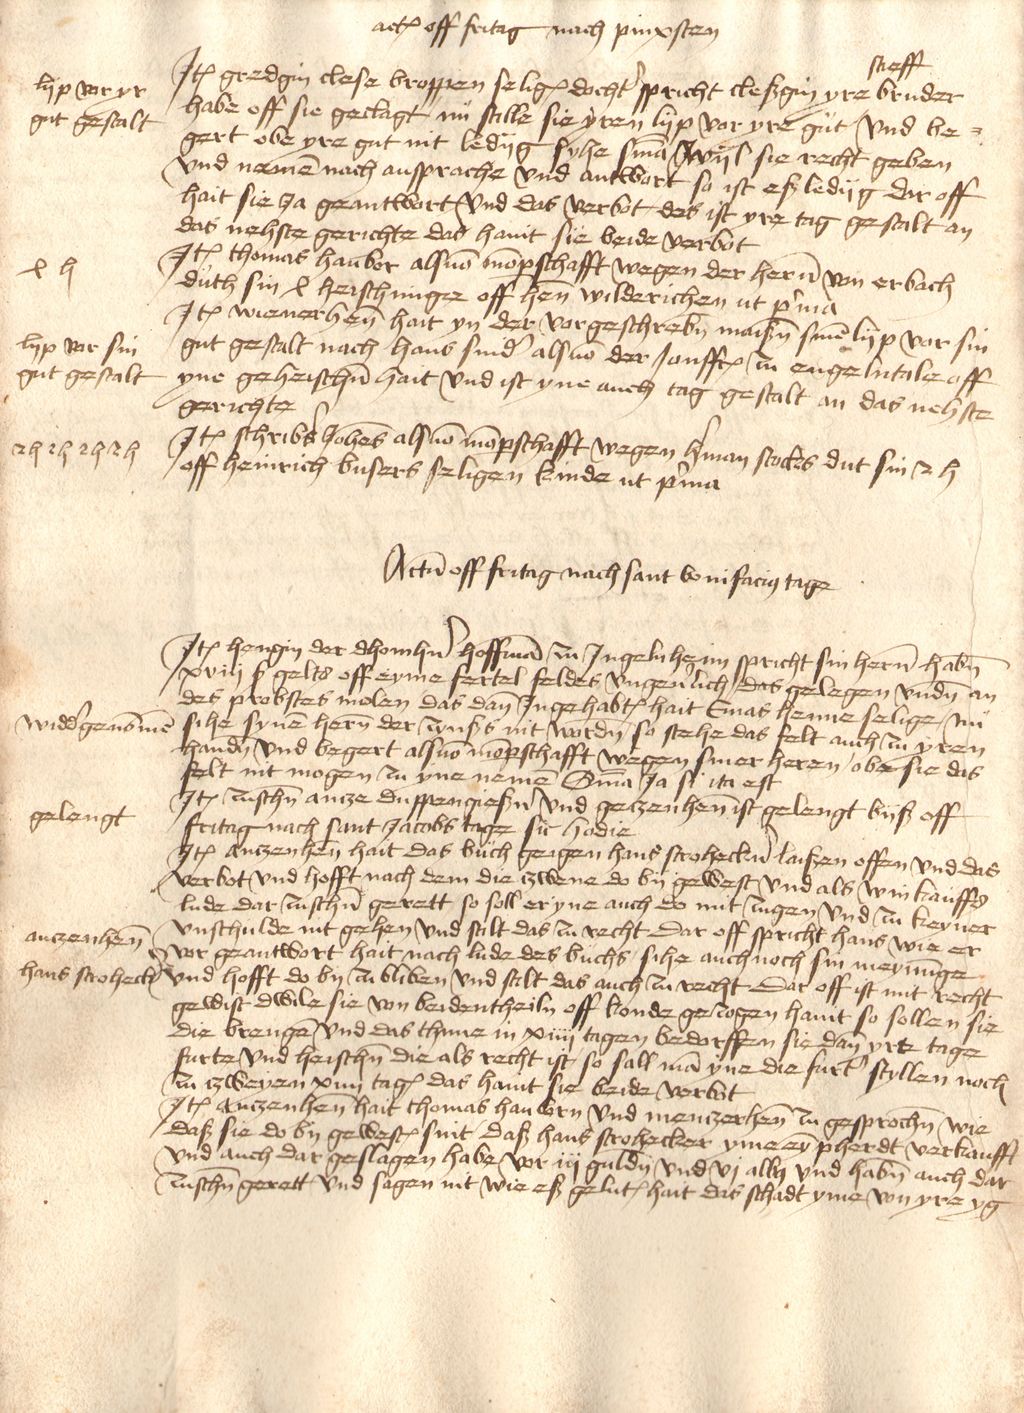 actu off fritag nach pinxsten
stieff
lijp vor yr
gut gestalt
Jtem gredgin clese kroppen selige dochter spricht cleßgin yre bruder
habe off sie geclagt nu stille sie yren lijp vor yre gut vnd be=
gert obe yre gut nit ledijg syhe sentencia wijl sie recht geben
vnd nemen nach ansprache vnd antwort so ist eß ledijg dar off
hait sie Ja geantwort vnd das verbot des ist yre tag gestalt an
das nehste gerichte das hant sie beide verbot
Jtem thomas hanbor als von momperschafft wegen der hern von erbach
duth sin heischunge off hen wilderichen ut prima
lijp vor sin
gut gestalt
Jtem wienerhen hait yn der vorgeschreben maißen sinen lijp vor sin
gut gestalt nach hans snider als von der Jonffern zu engelntale off
yne geheischen hait vnd ist yne auch tag gestalt an das nehste
gerichte
2 h 2 h 2 h 2 h
Jtem schribers Johannes als von momperschafft wegen herman stocks dut sin 2 h
off heinrich busers seligen kinde ut prima
Actum off fritag nach sant bonifacius tage
Jtem hengin der dhomherren hoffman zu Jngelnheim spricht sin hern haben
xviij ß gelts off eyme fertel feldes vngeuerlich das gelegen vnden an
des probstes molen das dan Jngehabt hait Emas henne selige nu
widder genommen
sihe synen hern der zinß nit worden so stehe das felt auch zu yren
handen vnd begert als von momperschafft wegen siner heren obe sie das
felt nit mogen zu yne nemen Sentencia Ja si ita est
gelengt
Jtem zuschen antze duppengießer vnd gerzenhen ist gelengt bijß off
fritag nach sant Jacobs tage sic hodie
Jtem antzenhen hait das buch geigen hans strohecker laißen offen vnd das
verbot vnd hofft nach dem die zwene do by gewest vnd als winkauffs
lude dar zuschen gerett so soll er yne auch do mit zugen vnd zu keyner
vnschulde nit gehen vnd stilt das zu recht Dar off spricht hans wie er
antzenhen
vor geantwort hait nach lude des buchs sihe auch noch sin meynunge
hans strohecker
vnd hofft do by zu bliben vnd stilt das auch zu recht Dar off ist mit recht
gewist dwile sie von beidentheiln off konde gezogen hant so sollen sie
die brengen vnd das thune in xiiij tagen bedorffen sie dan yrer tage
furter vnd heischen die als recht ist so sall man yne die furter styllen noch
zu zweyen xiiij tagen das hant sie beide verbot
Jtem antzenhen hait thomas hanborn vnd mentzerhen zu gesprochen wie
daß sie do by gewest sint daß hans strohecker yme eyn pherdt verkaufft
vnd auch dar geslagen habe vor iij gulden vnd vj albus vnd haben auch dar
zuschen gerett vnd sagen nit wie eß gelut hait das schadt yme von yre yg